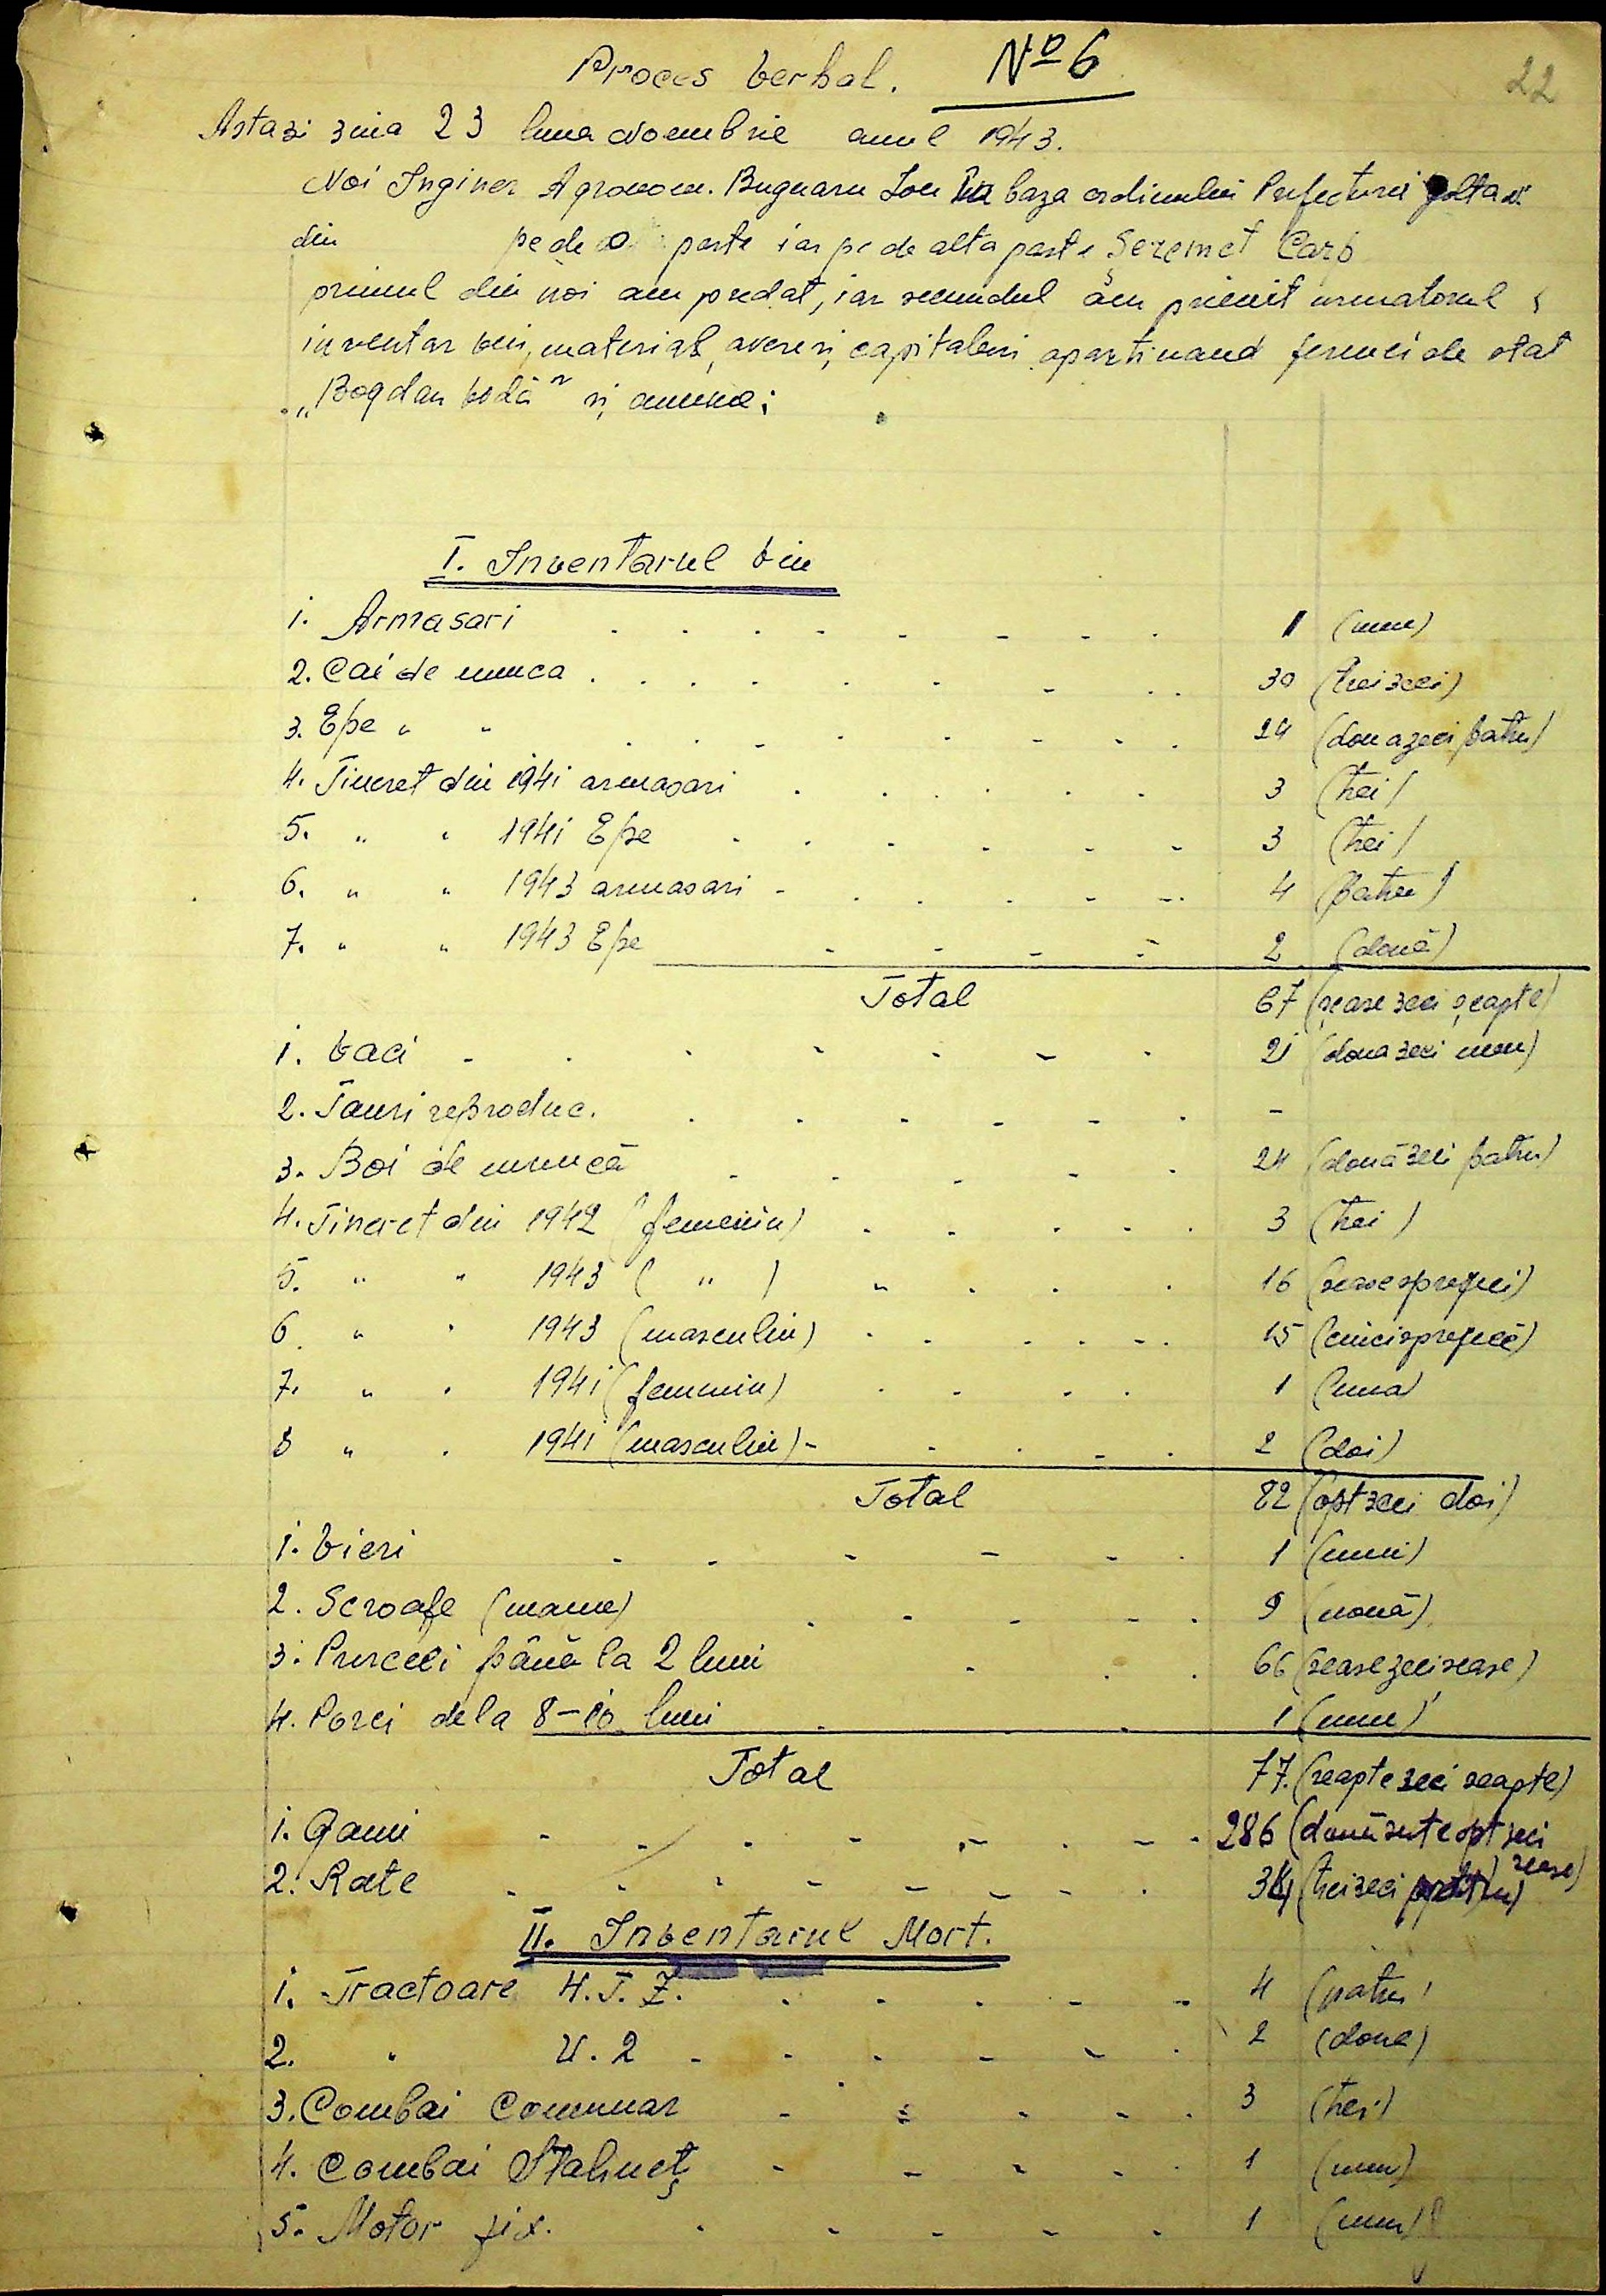 Proces verbal. No 6
22
Astazi ziua 23 luna Noembrie anul 1943.
Noi Inginer Agronom. Bugnaru Ion în baza ordinului Prefecturei Golta
din pe de o parte iar pe de alta parte Șeremet Carp
primul din noi am predat, iar secundul am primit urmatorul
inventar viu, material, avere și capitaluri aparținand fermei de stat
„Bogdan Vodă" și anume:
I. Inventarul viu
1. Armasari 1 (unu)
2. Cai de munca 30 (treizeci)
3. Epe " " 24 (douazeci patru)
4. Tineret din 1941 armasari 3 (trei)
5. " " 1941 Epe 3 (trei)
6. " " 1943 armasari 4 (patru)
7. " " 1943 Epe 2 (două)
Total 67 (șease zeci șeapte)
1. Vaci 21 (doua zeci unu)
2. Tauri reproduc. -
3. Boi de muncă 24 (două zeci patru)
4. Tineret din 1942 (femenin) 3 (trei)
5. " " 1943 ( " ) 16 (seasesprezeci)
6. " " 1943 (masculin) 15 (cincisprezece)
7. " " 1941 (femenin) 1 (una)
8 " " 1941 (masculin) 2 (doi)
Total 82 (opt zeci doi)
1. Vieri 1 (unu)
2. Scroafe (mame) 9 (nouă)
3. Purcei până la 2 luni 66 (sease zeci sease)
4. Porci dela 8-10 luni 1 (unu)
Total 77. (seapte zeci seapte)
1. Gaini 286 (două sute opt zeci
sease)
2. Rate 34 (treizeci patru)
II. Inventarul Mort.
1. Tractoare H.T.Z. 4 (patru)
2. " U.2 2 (doue)
3. Combai Comunar 3 (trei)
4. Combai Stalineț 1 (unu)
5. Motor fix. 1 (unu)